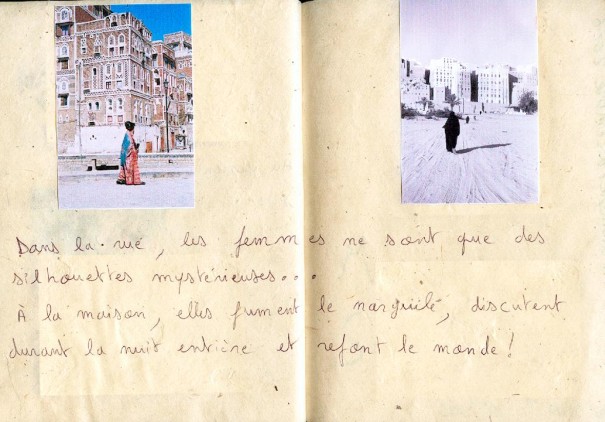 Dans la rue, les femmes ne sont que des
silhouettes mystérieuses...
À la maison, elles fument le narguilé, discutent
durant la nuit entière et refont le monde!